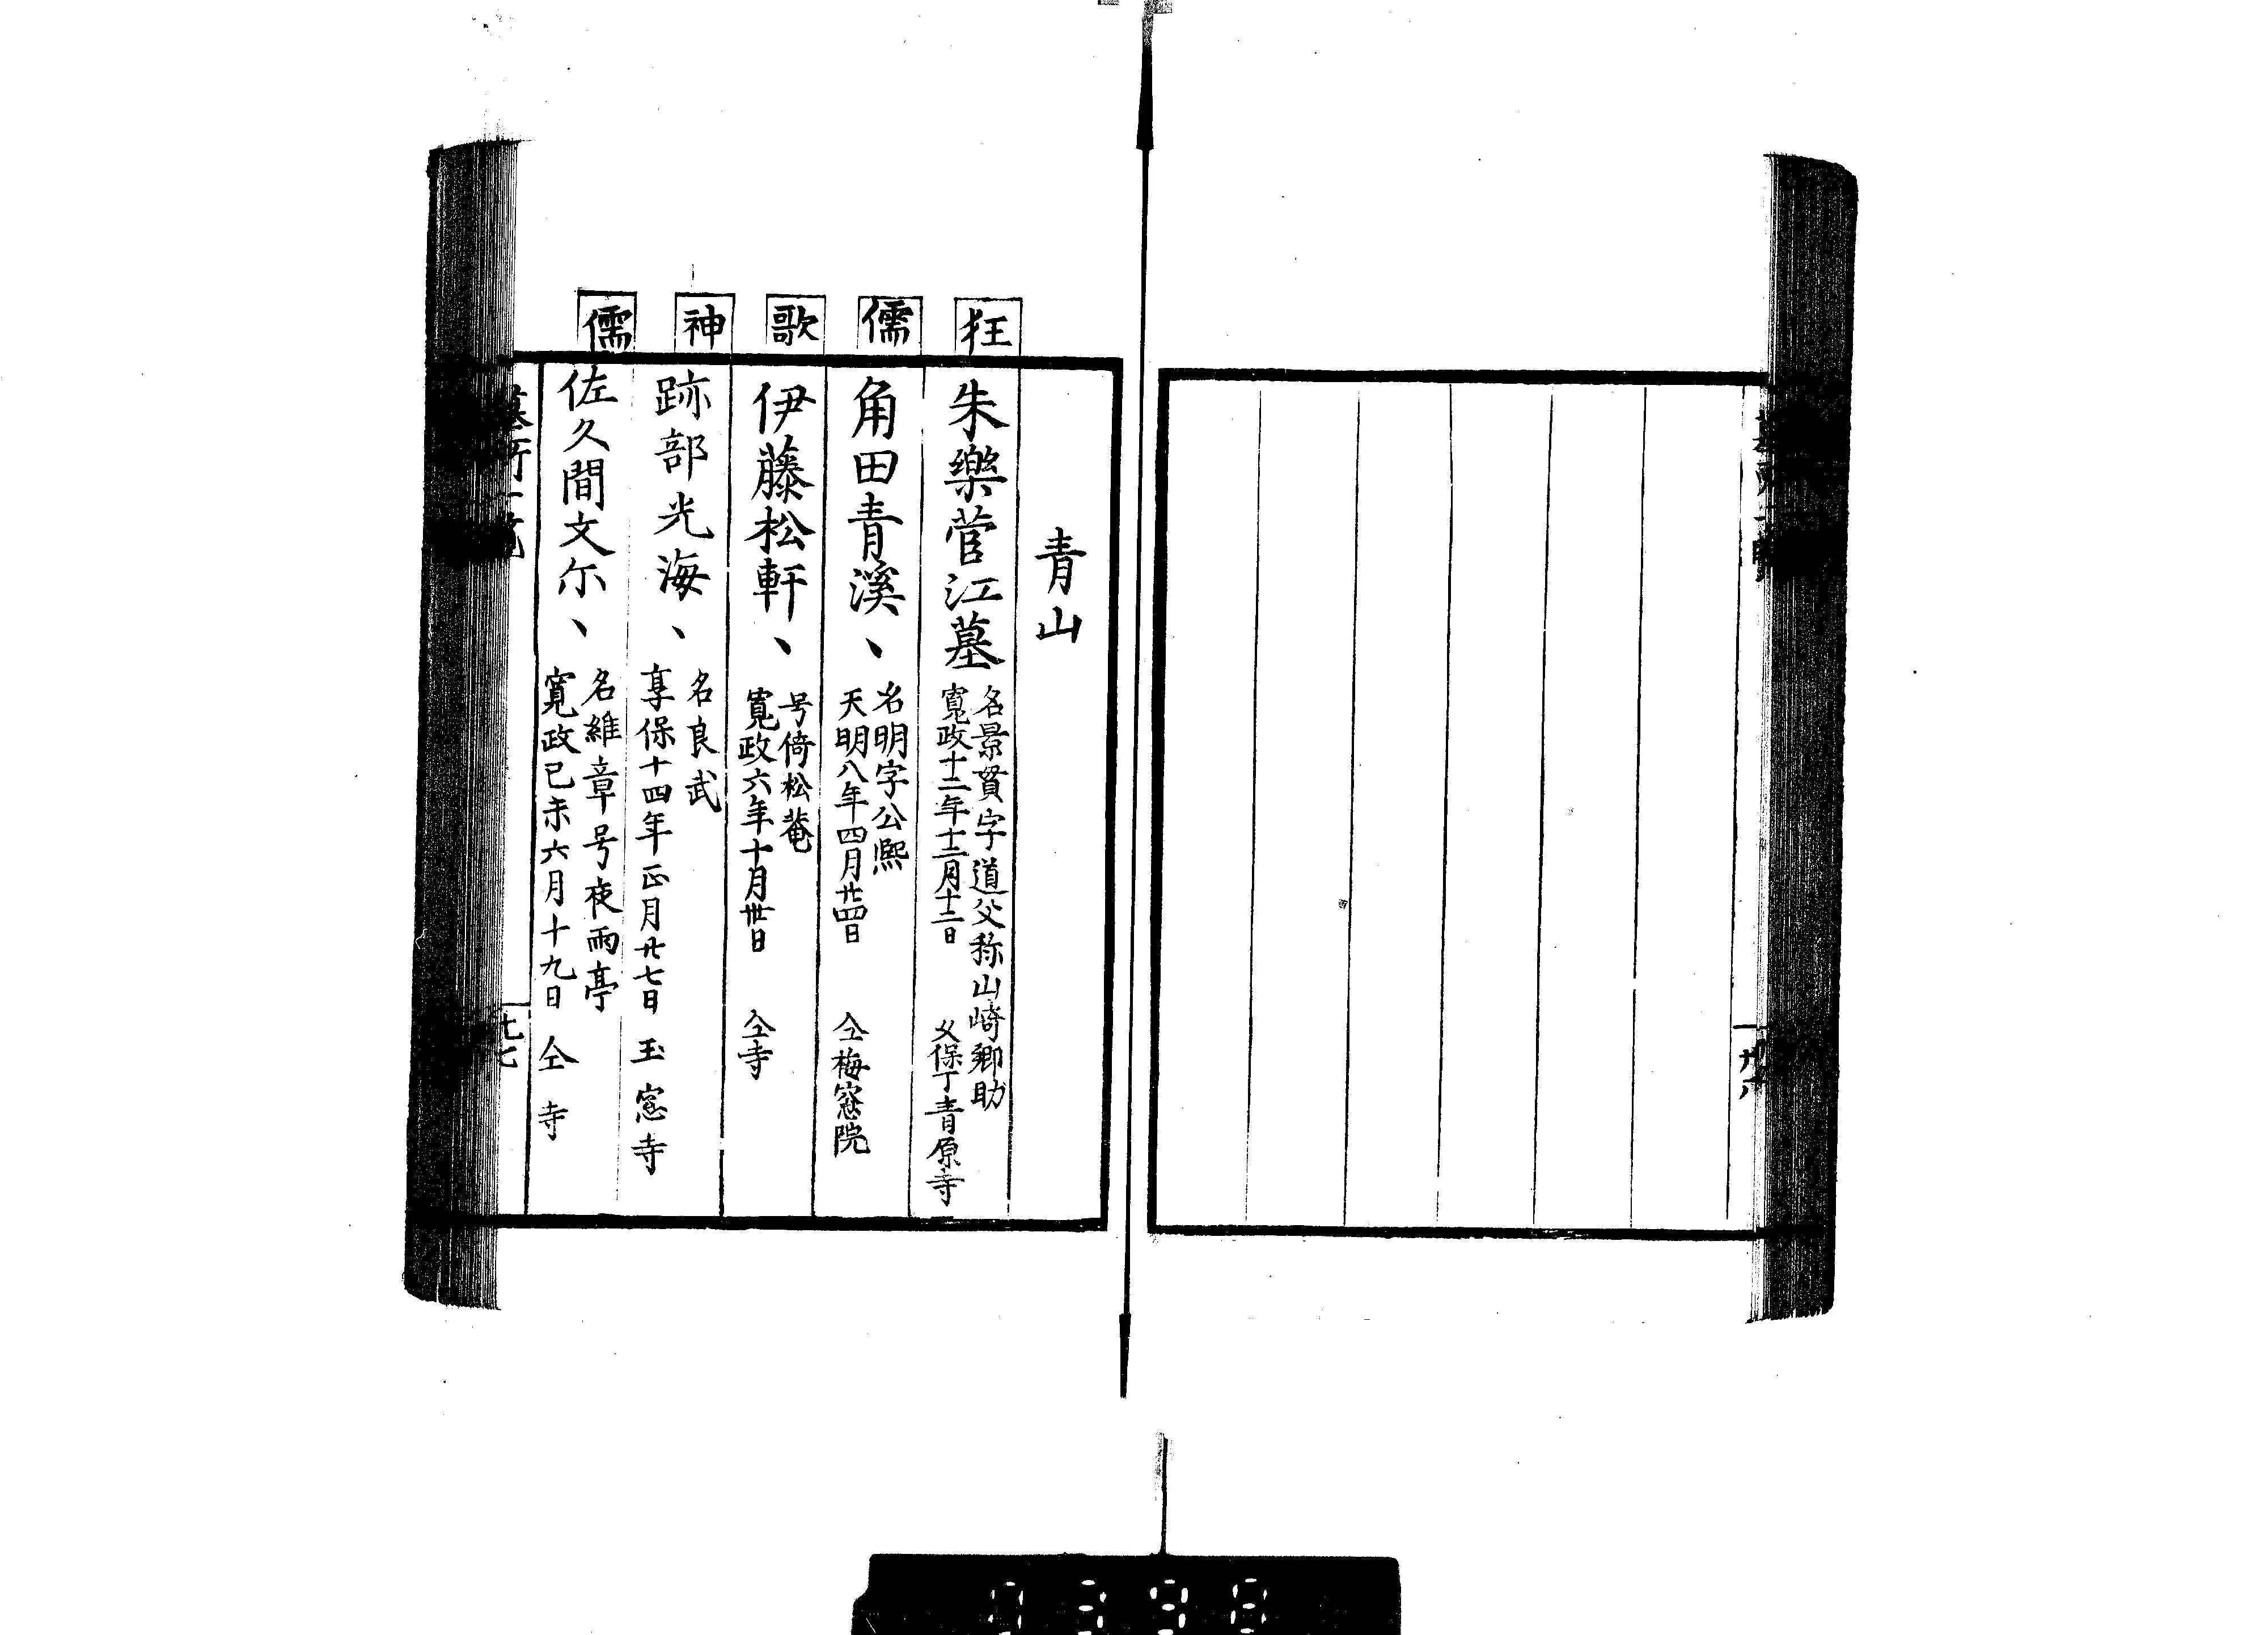 青山
狂
朱樂菅江墓
名景貫字道父称山崎郷助
寛政十二年十二月十二日
久保丁青原寺
儒
角田青溪、
名明字公熈
天明八年四月廿四日
仝梅窓院
歌
伊藤松軒、
号倚松菴
寛政六年十月卅日
仝寺
神
跡部光海、
名良武
享保十四年正月廿七日
玉窓寺
儒
佐久間文尓、
名維章号夜雨亭
寛政己未六月十九日
仝寺